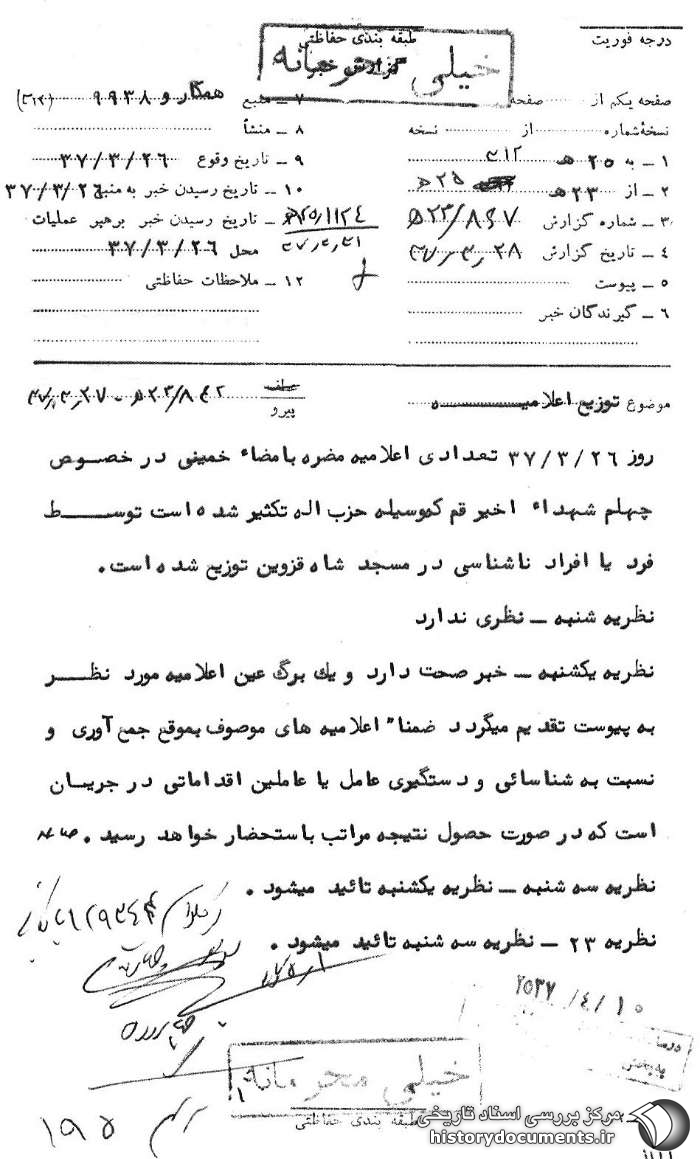 درجه فوریت
طبقه بندی حفاظتی
گزارش خبر
خیلی محرمانه
صفحه یکم از ........ صفحه
نسخهٔ شماره ........ از ........ نسخه
۱ ــ به ۲۰ هـ ۳۱۲
۲ ــ از ۲۳ هـ ۲۵ هـ
۳ ــ شماره گزارش ۵۲۳/۸۶۷
۴ ــ تاریخ گزارش ۳۷٫۳٫۲۸
۵ ــ پیوست
۶ ــ گیرندگان خبر
۷ ــ منبع همکار و ۹۹۳۸ (۳۱۲)
۸ ــ منشأ
۹ ــ تاریخ وقوع ۳۷/۳/۲۶
۱۰ ــ تاریخ رسیدن خبر به منبع ۳۷/۳/۲۶
۱۱ ــ تاریخ رسیدن خبر برهبر عملیات
محل ۳۷/۳/۲۶
۱۲ ــ ملاحظات حفاظتی
موضوع توزیع اعلامیـــه
عطف
پیرو ۵۲۳/۸۴۲ - ۳۷٫۳٫۲۷
روز ۳۷/۳/۲۶ تعدادی اعلامیه مضره بامضاء خمینی در خصوص
چهلم شهداء اخیر قم که بوسیله حزب اله تکثیر شده است توســـط
فرد یا افراد ناشناسی در مسجد شاه قزوین توزیع شده است.
نظریه شنبه ــ نظری ندارد
نظریه یکشنبه ــ خبر صحت دارد و یك برگ عین اعلامیه مورد نظــر
به پیوست تقدیم میگردد ضمنا" اعلامیه های موصوف بموقع جمع آوری و
نسبت به شناسائی و دستگیری عامل یا عاملین اقداماتی در جریــان
است که در صورت حصول نتیجه مراتب باستحضار خواهد رسید .
نظریه سه شنبه ــ نظریه یکشنبه تائید میشود .
نظریه ۲۳ ــ نظریه سه شنبه تائید میشود .
۲۵۳۷/۴/۱۰
خیلی محرمانه
طبقه بندی حفاظتی
۱۹۵
مرکز بررسی اسناد تاریخی
historydocuments.ir